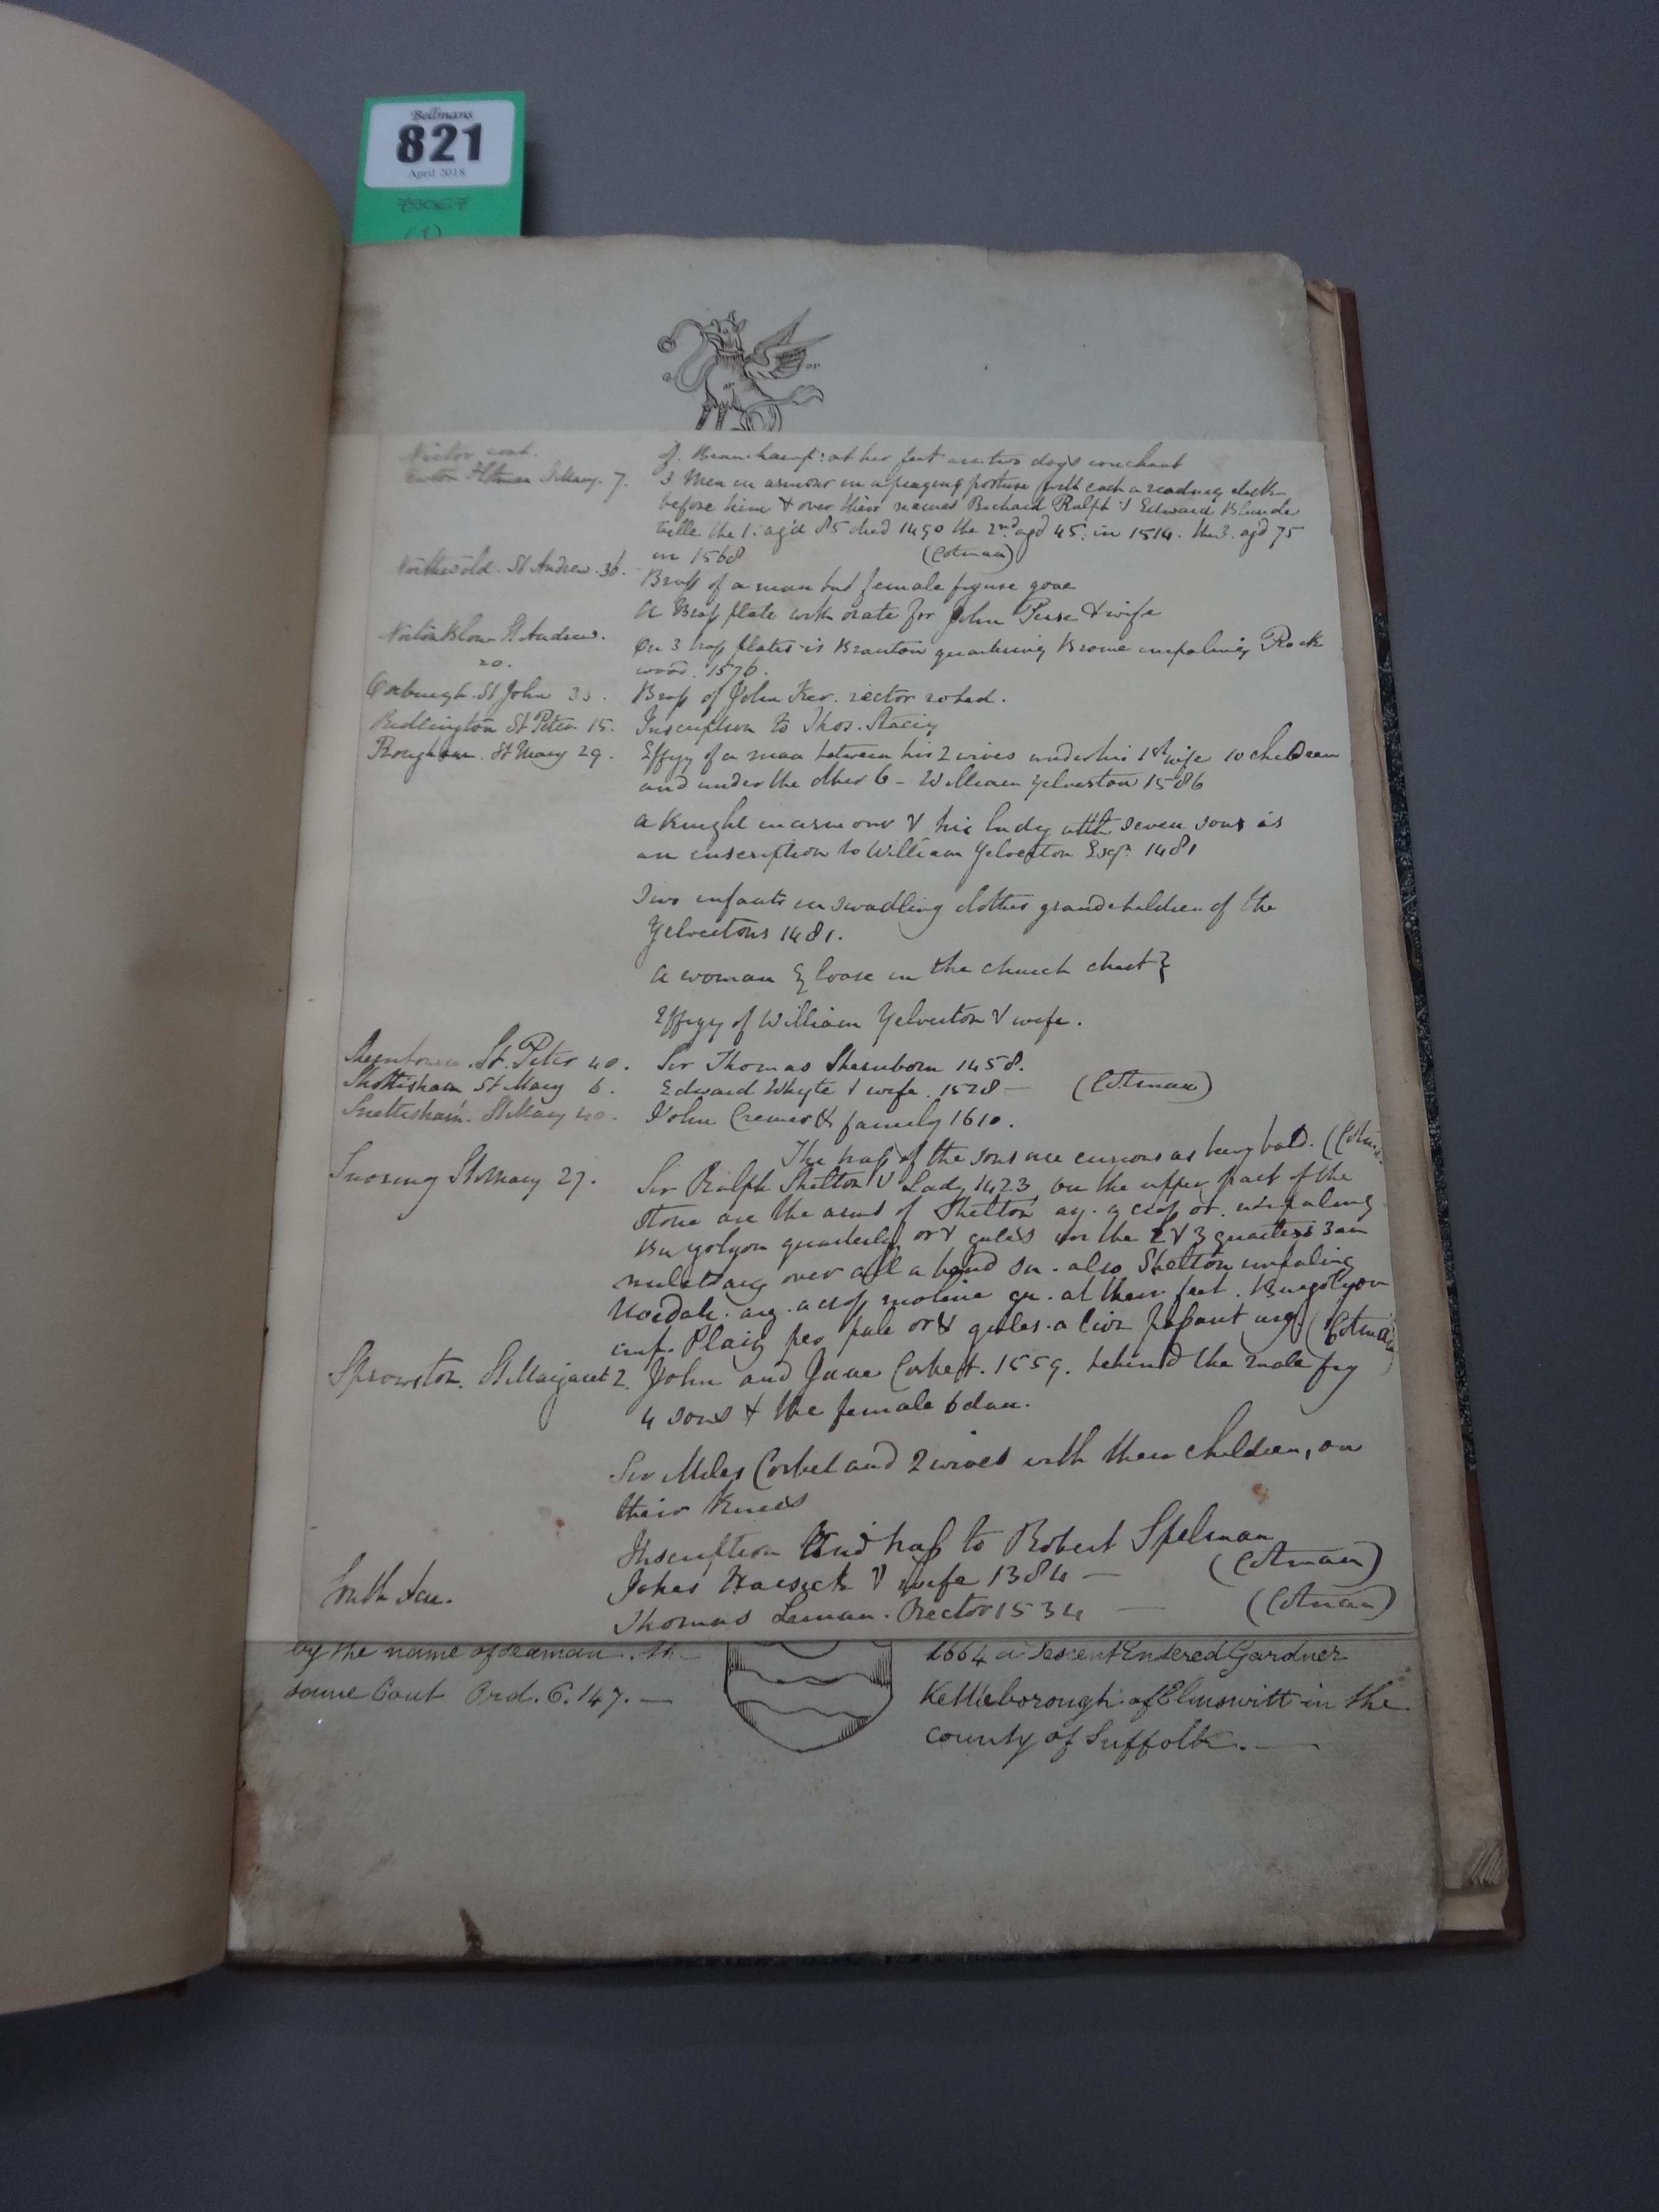 Bellmans
821
April 2018
or
of Beauchamp: at her feet are two dogs couchant
cont.
St Mary. 7. 3 Men in armour in a praying posture with each a reading desk
before him & over their names Richard Ralph & Edward Blunde
ville the 1. aged 85 died 1490 the 2nd. aged 45. in 1514. the 3. aged 75
in 1568 (Cotman)
Northwold. St Andrew. 36. Brass of a man but female figure gone
A Brass plate with orate for John & wife
St Andrew. On 3 brass plates is quartering Brome impaling Rock
20. wood. 1576.
Oxburgh. St John 33. Brass of John rector robed.
St Peter 15. Inscription to Thos. Stacey
Rougham. St Mary 29. Effigy of a man between his 2 wives under his 1st wife 10 children
and under the other 6 - William Yelverton 1586
A Knight in armour & his lady with seven sons is
an inscription to William Yelverton Esqr. 1481
Two infants in swadling clothes grandchildren of the
Yelvertons 1481.
A woman } loose in the church chest }
Effigy of William Yelverton & wife.
St. Peter 40. Sir Thomas Shernborn 1458.
Shottisham St Mary 6. Edward Whyte & wife. 1528 — (Cotman)
Snettisham. St Mary 40. John Cremer & family 1610.
The brass of the sons are curious as being bald. (Cotman
Snoring St Mary 27. Sir Ralph Shelton & Lady 1423 on the upper part of the
stone are the arms of Shelton az. a cross or. impaling
Burgolyon quarterly or & gules in the 2 & 3 quarters 3 an
nulets arg over all a bend sa. also Shelton impaling
Uvedale. arg. a cross moline gu. at their feet. Burgolyon
imp. Plaiz per pale or & gules. a lion passant arg. (Cotman
Sprowston. St Margaret 2. John and Jane Corbett. 1559. behind the male fig
4 sons & the female 6 dau.
Sir Miles Corbet and 2 wives with their children, on
their Knees
Inscription brass to Robert Spelman
South Acre. Johes Harsick & wife 1384 — (Cotman)
Thomas Leman. Rector 1534 — (Cotman)
by the name of Leaman. In
same Coat Ord. 6. 147. —
1664 a Descent Entered Gardner
Kettleborough of Elmswitt in the
county of Suffolk. —